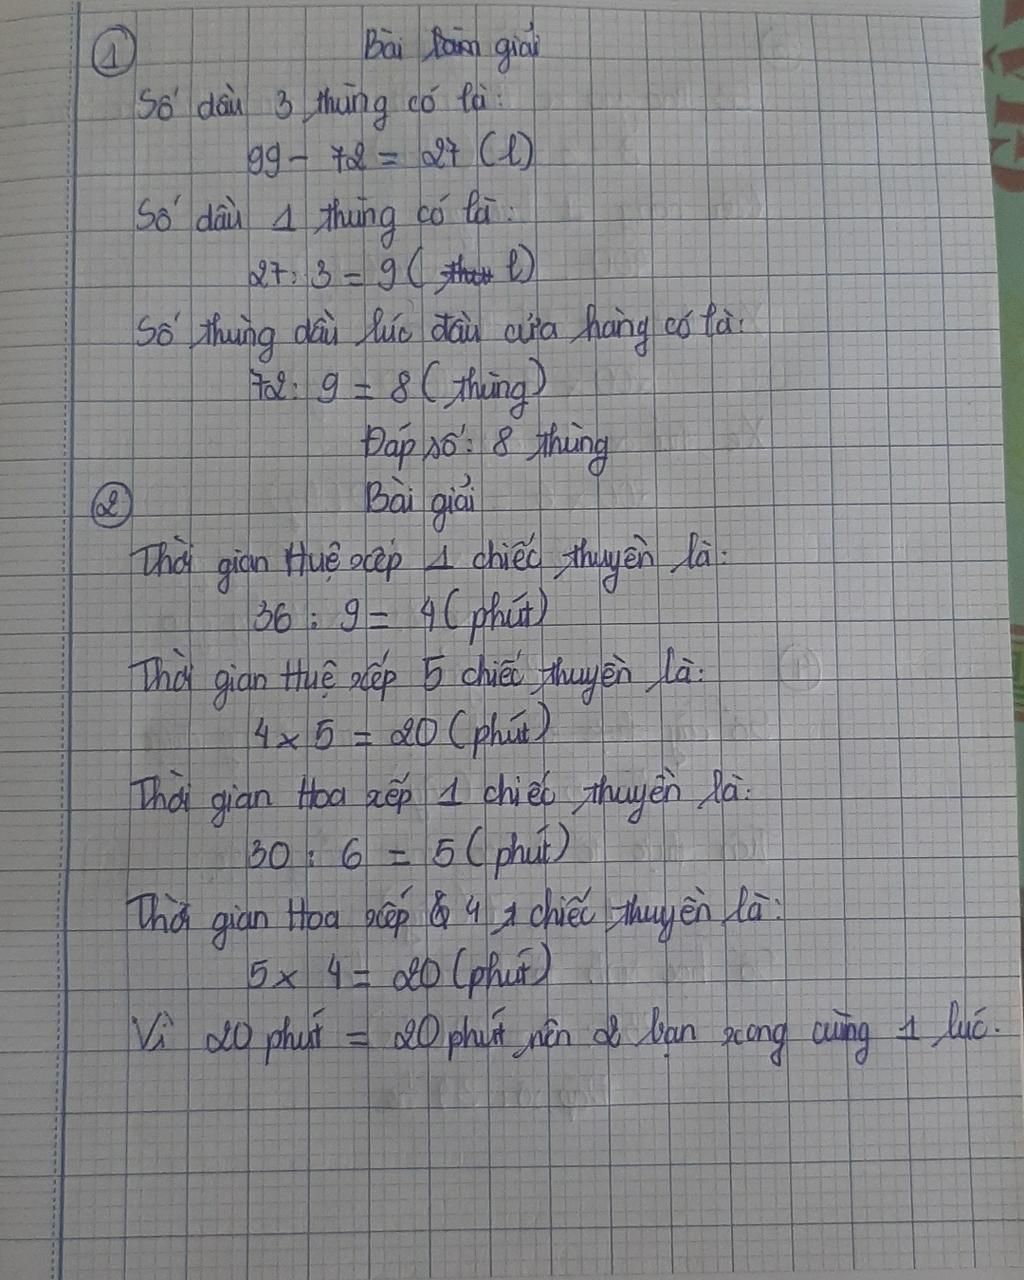 ① Bài làm giải
Số dầu 3 thùng có là:
99 - 72 = 27 (l)
Số dầu 1 thùng có là:
27 : 3 = 9 ( l)
Số thùng dầu lúc đầu cửa hàng có là:
72 : 9 = 8 ( thùng)
Đáp số: 8 thùng
② Bài giải
Thời gian Huệ xếp 1 chiếc thuyền là:
36 : 9 = 4 ( phút)
Thời gian Huệ xếp 5 chiếc thuyền là:
4 x 5 = 20 ( phút)
Thời gian Hoa xếp 1 chiếc thuyền là:
30 : 6 = 5 ( phút)
Thời gian Hoa xếp 4 chiếc thuyền là:
5 x 4 = 20 (phút)
Vì 20 phút = 20 phút nên 2 bạn xong cùng 1 lúc.